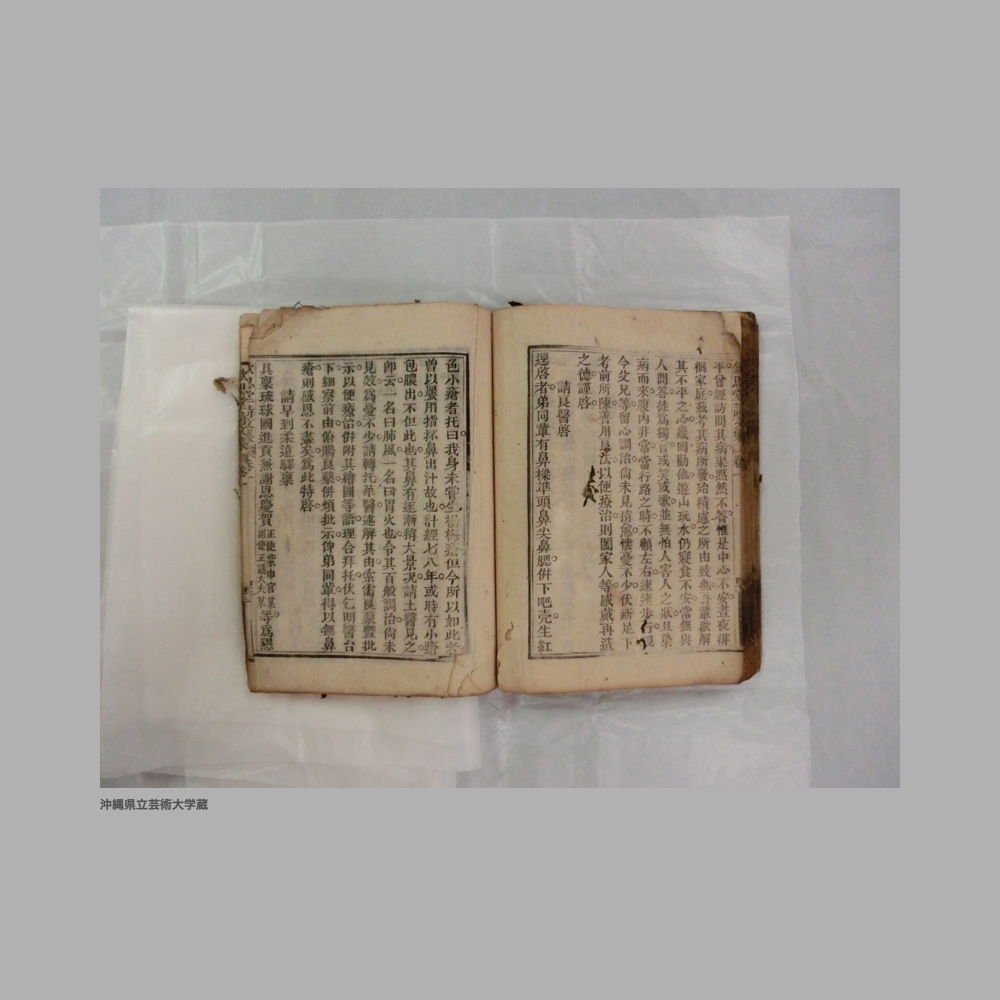 平曾經訪問其病渠黙然不答惟是中心不安晝夜徘
徊家庭茲考其病所發殆積慮之所由致也吾輩欲解
其不平之心幾回勸他遊山玩水仍寢食不安常無與
人問答徒爲獨言或笑或歌並無怕人害人之狀且染
病而來腹內非常當行路之時不顧左右速速步行現
今父兄等留心調治尚未見痊愈悽憂不少伏祈足下
考前所陳善用良法以便療治則闔家人等感戴再造
之德謹啓
請良醫啓
逕啓者弟同輩有鼻樑準頭鼻尖鼻腮併下吧壳生紅
色小瘡者托曰我身未嘗生楊梅瘡但今所以如此者
曾以屡用指抔鼻出汁故也計經七八年或時有小瘡
包膿出不但此也其鼻有逐漸稍大景况請土醫見之
卽云一名曰肺風一名曰胃火也令其百般調治尚未
見效爲憂不少請轉托華醫述解其由索需良藥曁批
示以便療治併附其繪圖等請理合拜托伏乞明醫台
下細察前由俯賜良藥併煩批示俾弟同輩得以無鼻
瘡則感恩不盡矣爲此特啓
請早到柔遠驛稟
具稟琉球國進貢兼謝恩慶賀正使紫巾官某副使正議大夫某等爲懇
沖縄県立芸術大学蔵